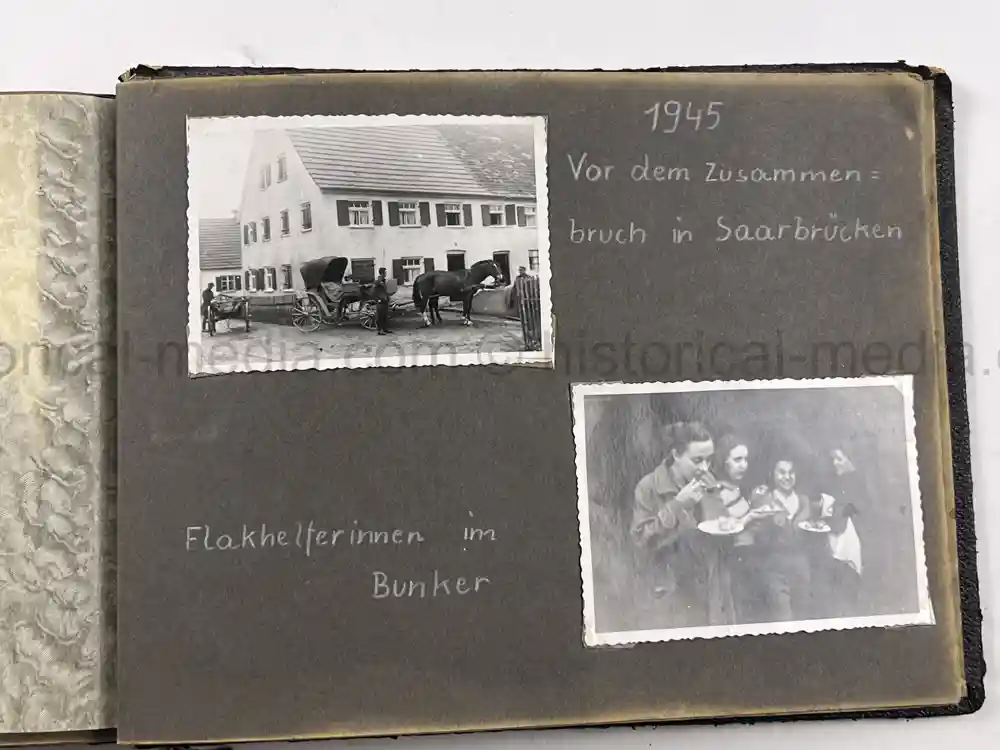 1945
Vor dem Zusammen=
bruch in Saarbrücken
orical-media.com © historical-media.c
Flakhelferinnen im
Bunker